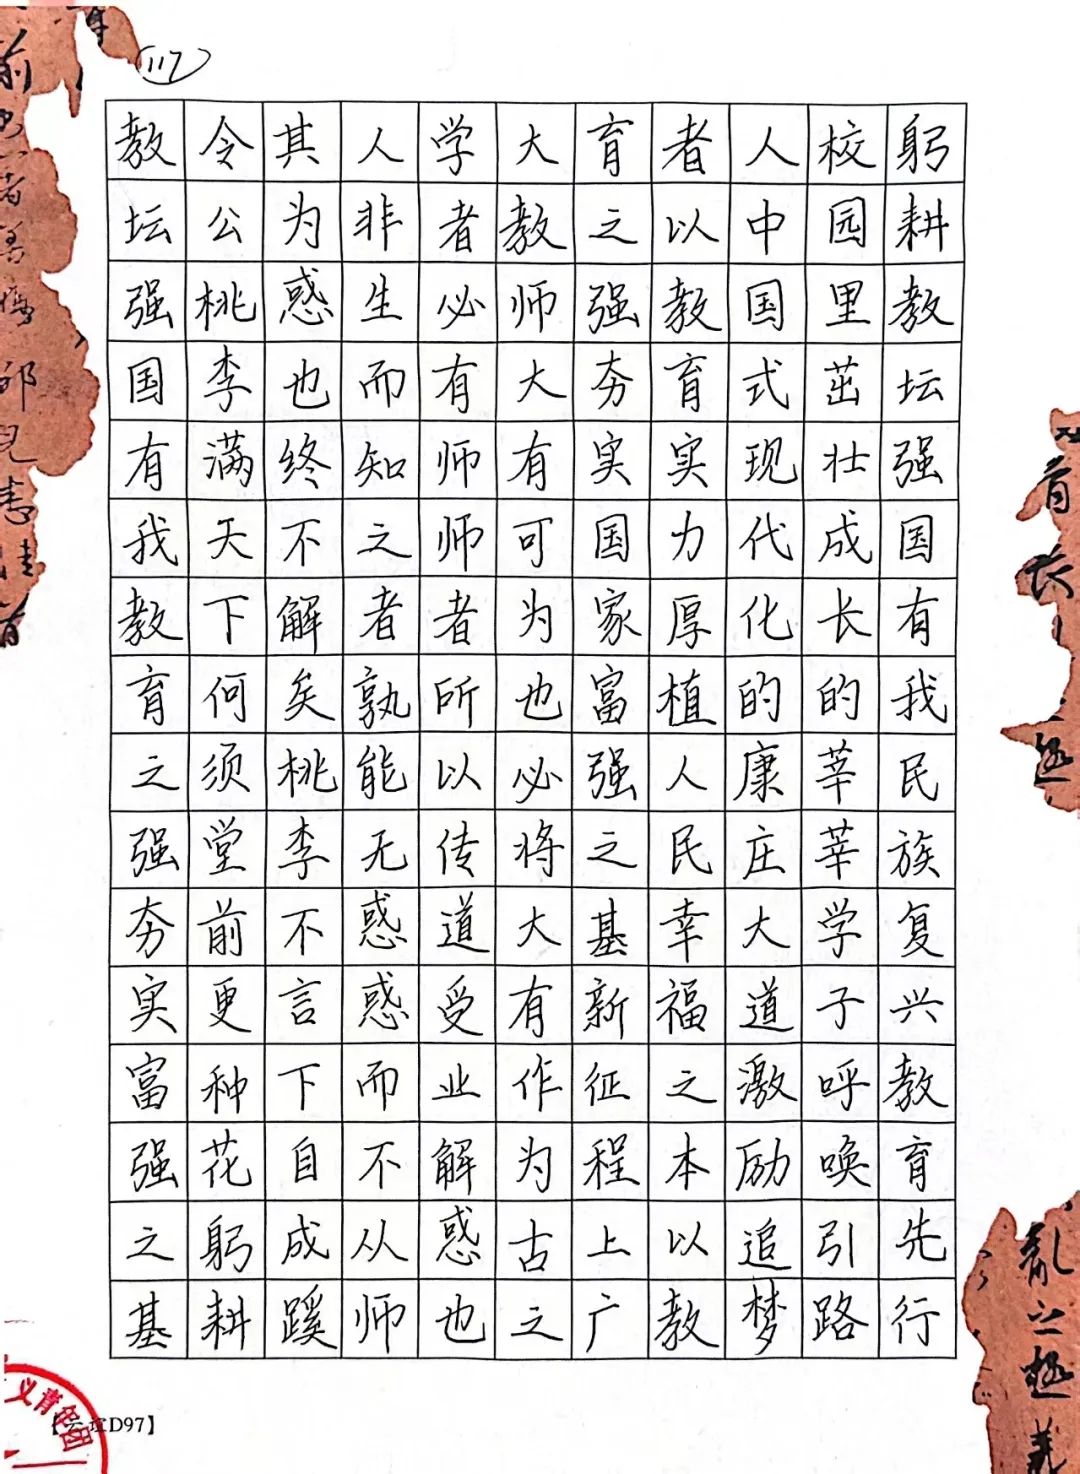 117
躬耕教坛强国有我民族复兴教育先行
校园里茁壮成长的莘莘学子呼唤引路
人中国式现代化的康庄大道激励追梦
者以教育实力厚植人民幸福之本以教
育之强夯实国家富强之基新征程上广
大教师大有可为也必将大有作为古之
学者必有师师者所以传道受业解惑也
人非生而知之者孰能无惑惑而不从师
其为惑也终不解矣桃李不言下自成蹊
令公桃李满天下何须堂前更种花躬耕
教坛强国有我教育之强夯实富强之基
D97】
义青年团